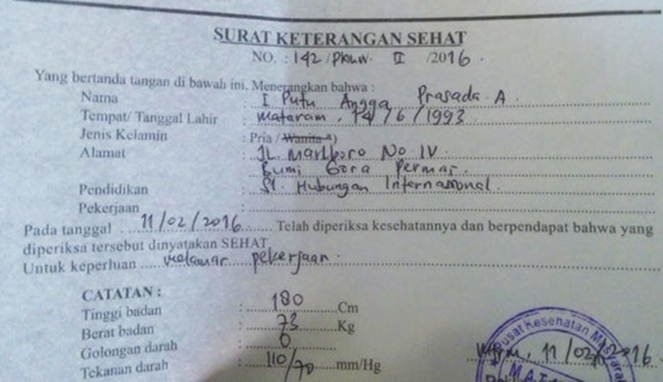 SURAT KETERANGAN SEHAT
NO. : 142 /PKLW. II /2016.
Yang bertanda tangan di bawah ini, Menerangkan bahwa :
Nama : I Putu Angga Prasada A.
Tempat/ Tanggal Lahir : Mataram, 14/6/1993
Jenis Kelamin : Pria / Wanita *)
Alamat : JL. Marlboro No IV.
Bumi Gora Permai.
Pendidikan : S1. Hubungan Internasional.
Pekerjaan :
Pada tanggal 11/02/2016 Telah diperiksa kesehatannya dan berpendapat bahwa yang
diperiksa tersebut dinyatakan SEHAT.
Untuk keperluan melamar pekerjaan.
CATATAN :
Tinggi badan : 180 Cm
Berat badan : 73 Kg
Golongan darah : O
Tekanan darah : 110/70 mm/Hg
Pusat Kesehatan
11/02/2016